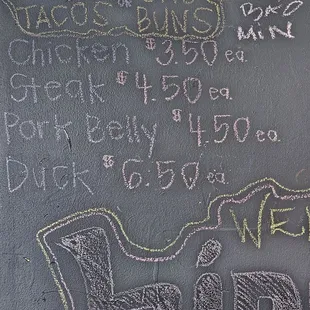 TACOS OR BUNS
Chicken $3.50 ea.
Steak $4.50 ea.
Pork Belly $4.50 ea.
Duck $6.50 ea.
MIN